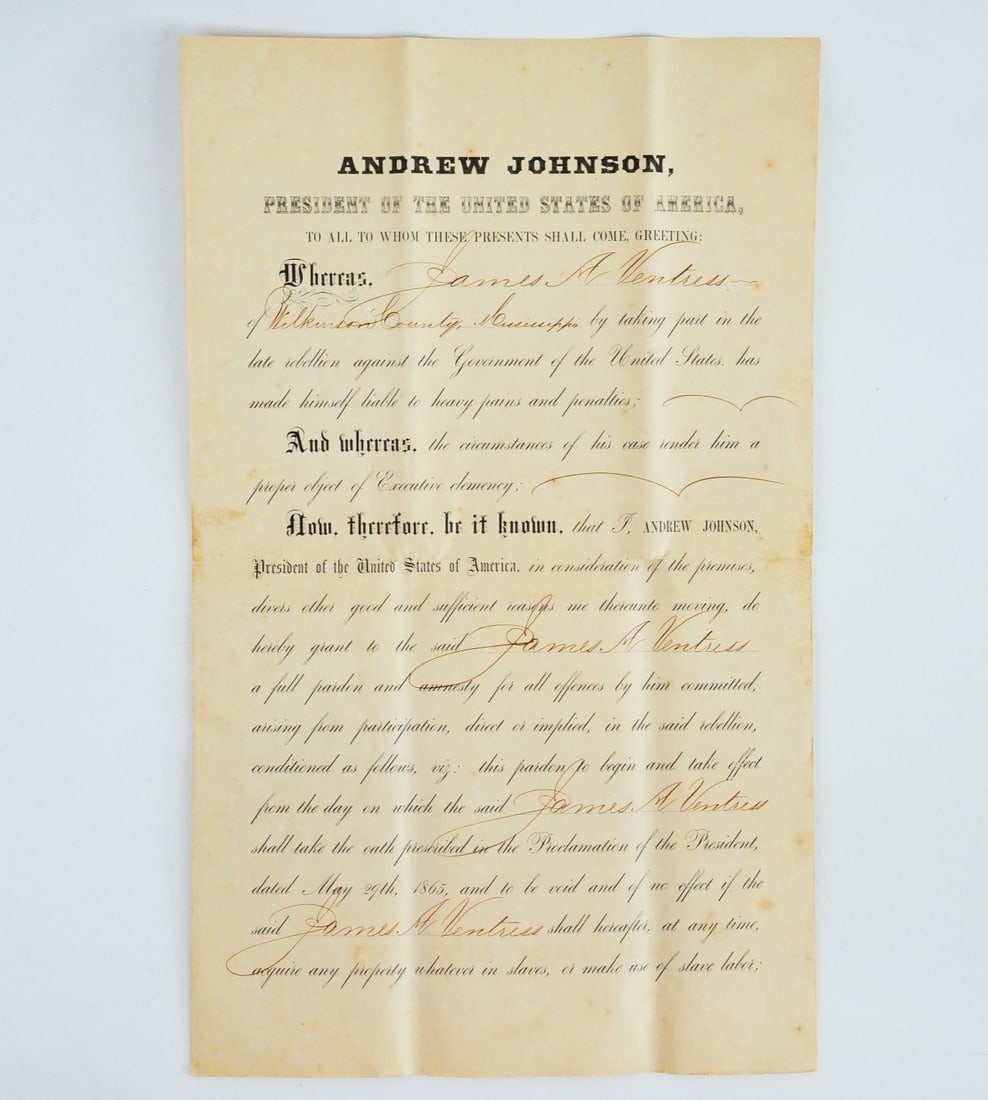 ANDREW JOHNSON,
PRESIDENT OF THE UNITED STATES OF AMERICA,
TO ALL TO WHOM THESE PRESENTS SHALL COME, GREETING:
Whereas, James A. Ventress
of Wilkinson County, Mississippi by taking part in the
late rebellion against the Government of the United States, has
made himself liable to heavy pains and penalties;
And whereas, the circumstances of his case render him a
proper object of Executive clemency;
Now, therefore, be it known, that I, ANDREW JOHNSON,
President of the United States of America, in consideration of the premises,
divers other good and sufficient reasons me thereunto moving, do
hereby grant to the said James A. Ventress
a full pardon and amnesty for all offences by him committed,
arising from participation, direct or implied, in the said rebellion,
conditioned as follows, viz: this pardon to begin and take effect
from the day on which the said James A. Ventress
shall take the oath prescribed in the Proclamation of the President,
dated May 29th, 1865, and to be void and of no effect if the
said James A. Ventress shall hereafter, at any time,
acquire any property whatever in slaves, or make use of slave labor;